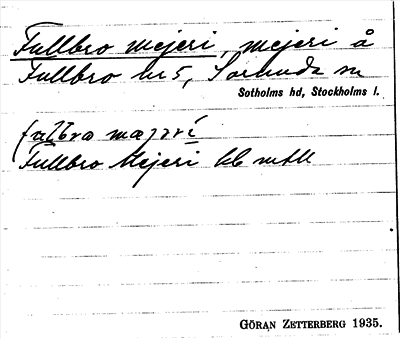 Fullbro mejeri, mejeri å
Fullbro nr 5, Sorunda sn
Sotholms hd, Stockholms l.
fullbro
Fullbro Mejeri
GÖRAN ZETTERBERG 1935.